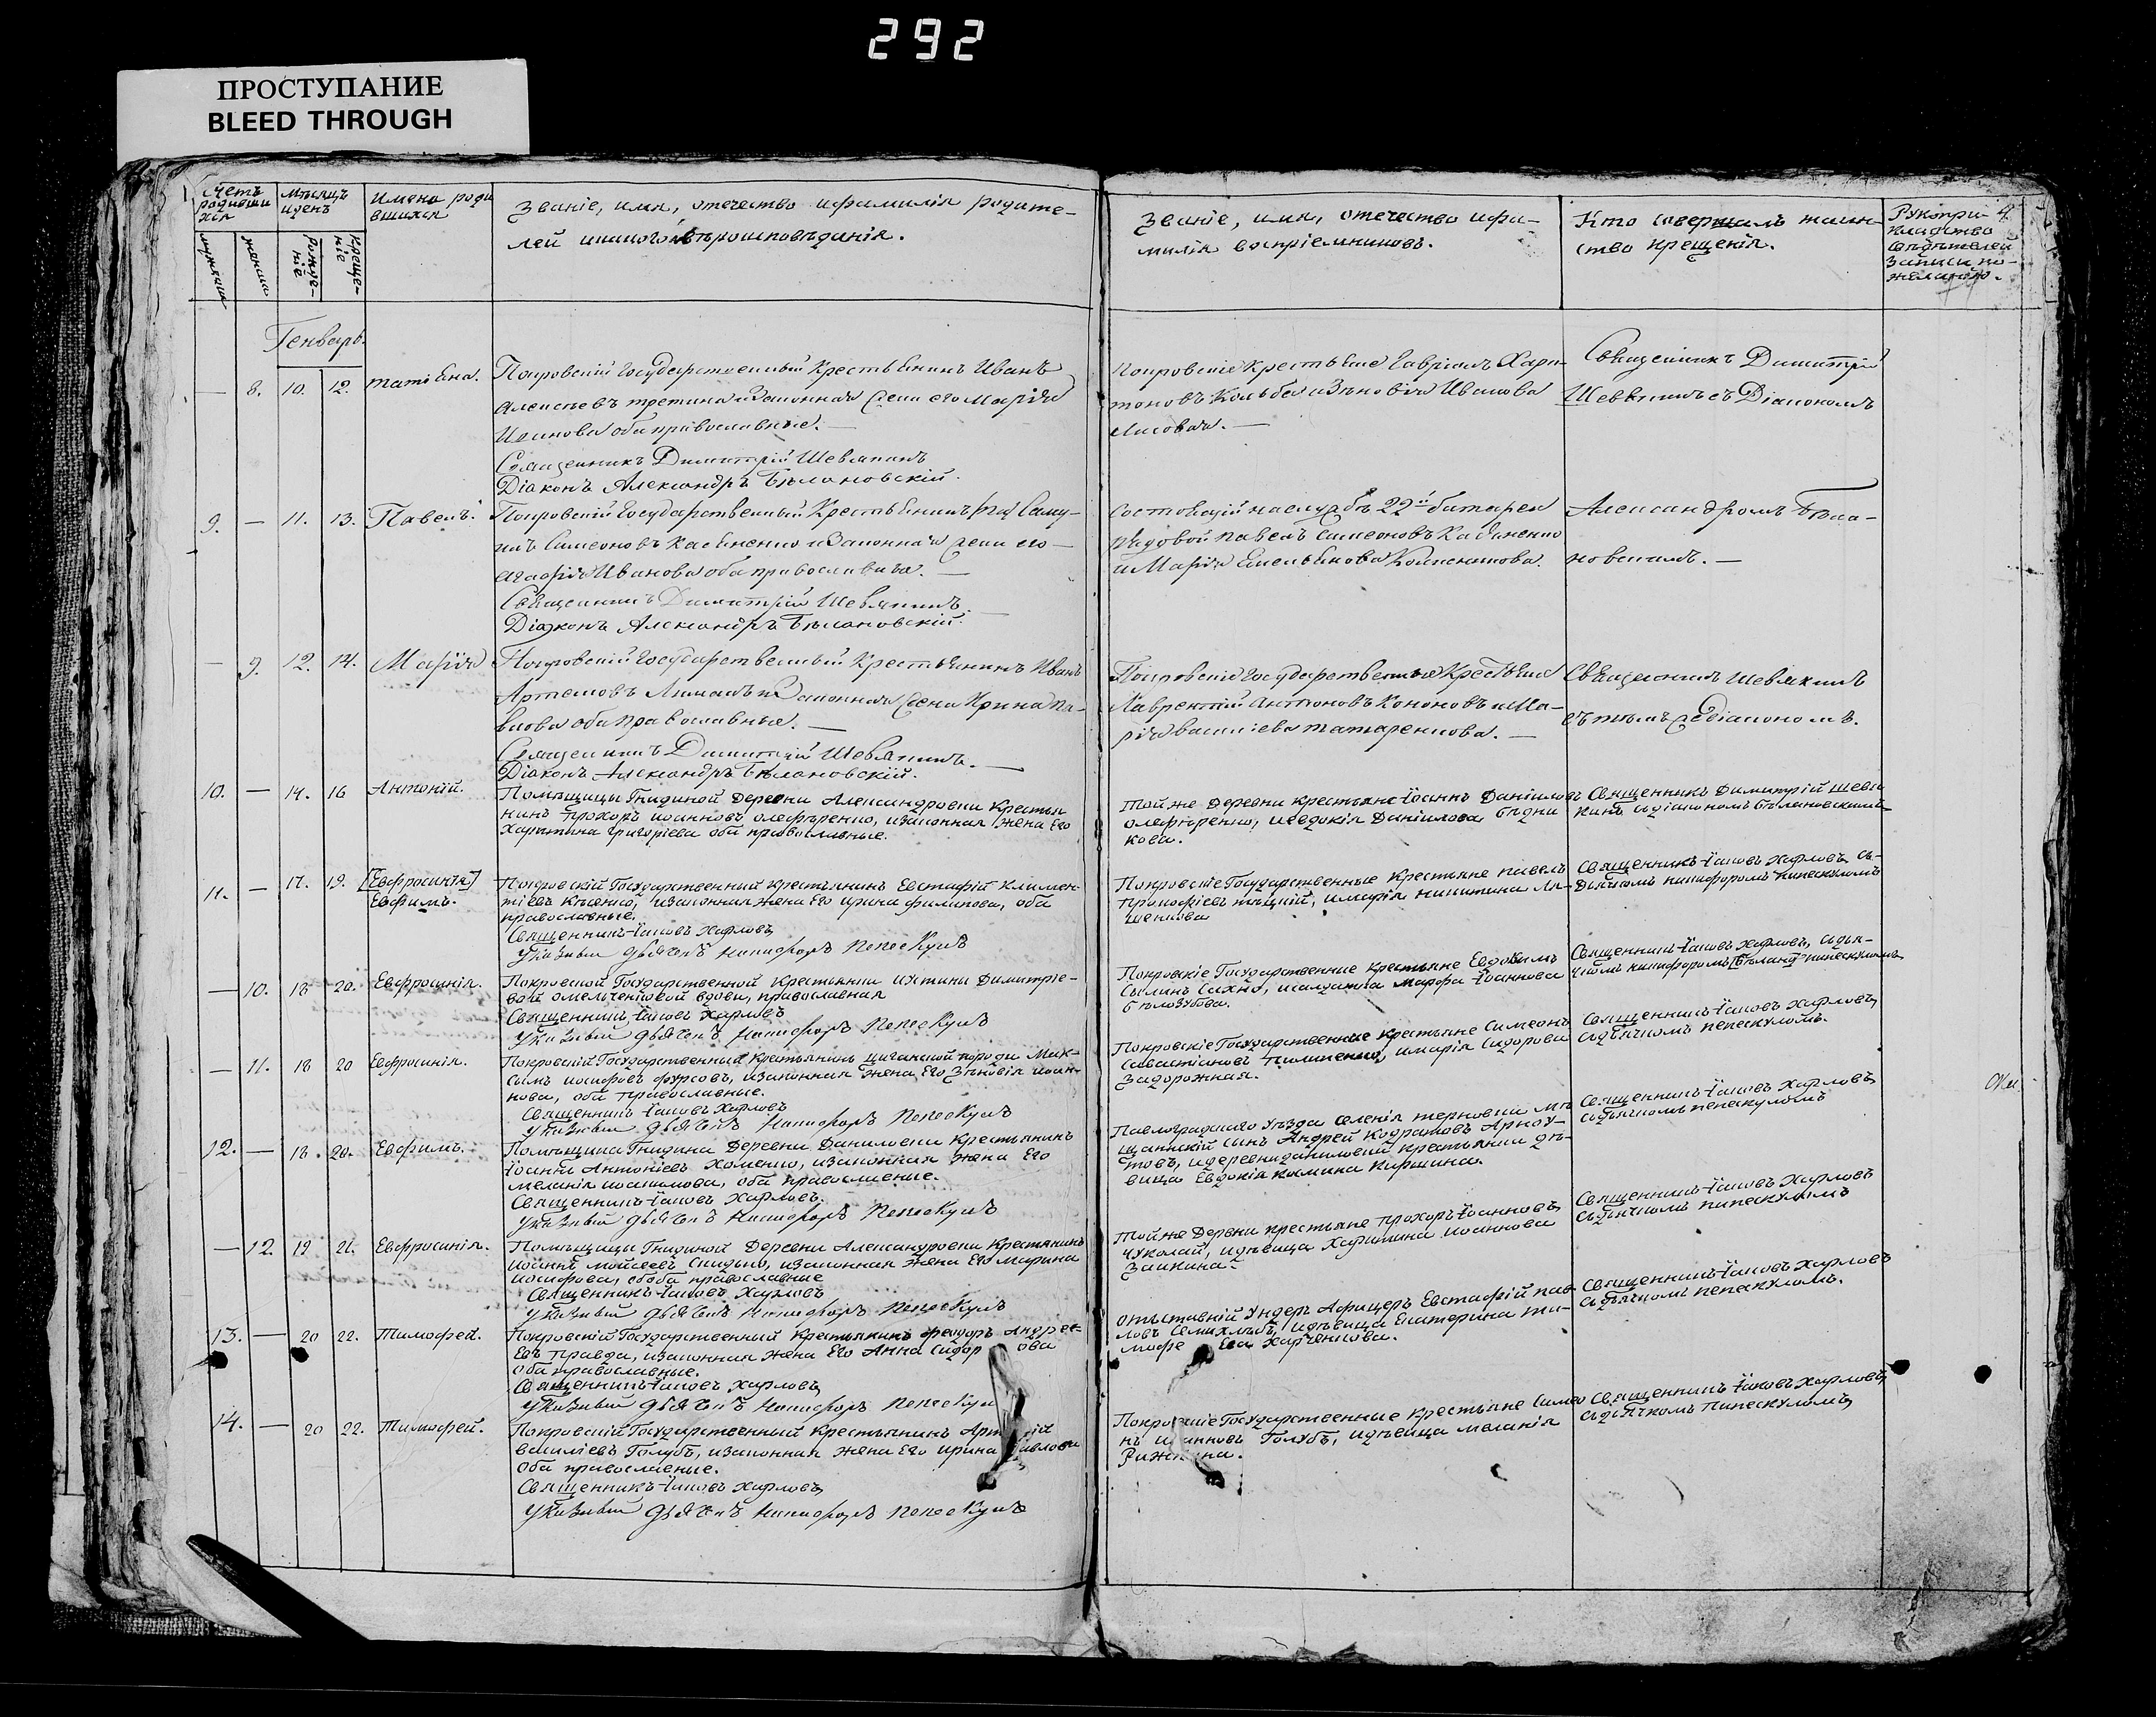 292
ПРОСТУПАНИЕ
BLEED THROUGH
Счетъ родивши хся
мужеска
женска
Мѣсяцъ и день
Рожде- ніе
Креще- ніе
Имена роди вшихся
Званіе, имя, отечество и фамилія родите-
лей и какого вѣроисповѣданія.
Званіе, имя, отечество и фа-
милія воспріемниковъ.
Кто совершалъ таин-
ство крещенія.
Рукопри-
кладство
свидѣтелей
записи по
желанію.
4.
Генварь.
— 8. 10. 12. Татіана.
Покровскій Государственный Крестьянинъ Иванъ
Алексѣевъ и Законная Жена его Марія
Иванова оба православные. —
Священникъ Димитрій Шевякинъ
Діаконъ Александръ Бѣлановскій.
Покровскіе Крестьяне Гавріилъ Хари-
тоновъ и Зѣновія Иванова
Лисовая. —
Священникъ Димитрій
Шевякинъ съ Діакономъ
9. — 11. 13. Павелъ.
Покровскій Государственный Крестьянинъ
Симеоновъ и Законная Жена его —
Агафія Иванова оба православные. —
Священникъ Димитрій Шевякинъ. —
Діаконъ Александръ Бѣлановскій.
Состоящій на службѣ 22й батареи
рядовой Павелъ Симеоновъ
и Марія Емельянова
Александромъ Бѣла-
новскимъ. —
— 9. 12. 14. Марія
Покровскій Государственный Крестьянинъ Иванъ
Артемовъ Лиманъ и Законная Жена Ирина Па-
влова оба православные. —
Священникъ Димитрій Шевякинъ. —
Діаконъ Александръ Бѣлановскій.
Покровскіе Государственные Крестьяне
Лаврентій Антоновъ Кононовъ и Ма-
рія Василіева Татаренкова. —
Священникъ Шевякинъ
съ тѣмъ же Діакономъ.
10. — 14. 16 Антоній.
Помѣщицы Гнидиной Деревни Александровки Крестья
нинъ Прохоръ Іоанновъ Олефѣренко, и законная жена Его
Харитина Григоріева оба православные.
Той же Деревни крестьяне Іоаннъ Даніиловъ
Олефѣренко, и Евдокія Даніилова Бѣдни
кова.
Священникъ Димитрій Шевя
кинъ и Діакономъ Бѣлановскимъ
11. — 17. 19. [Евфросинія]
Евфимъ.
Покровскій Государственный крестьянинъ Евстафій Климен-
тіевъ и законная жена Его Ирина Филипова, оба
православные.
Священникъ Іаковъ Харловъ
Указный дьячекъ Никифоръ Пепескулъ
Покровскіе Государственные Крестьяне Павелъ
Прокофіевъ и Марія Никитина Ля-
шенкова
Священникъ Іаковъ Харловъ съ
Дьячкомъ Никифоромъ Пепескуломъ
— 10. 18 20. Евфросинія.
Покровской Государственной Крестьянки Иустины Димитріе-
вой Омельченковой вдовы, православная
Священникъ Іаковъ Харловъ
Указный дьячекъ Никифоръ Пепескулъ
Покровскіе Государственные крестьяне Евдокимъ
Сахно, и солдатка Марфа Іоаннова
Бѣлозубова.
Священникъ Іаковъ Харловъ, съ дья-
чкомъ Никифоромъ [Бѣлано] Пепескуломъ
— 11. 18 20 Евфросинія.
Покровскій Государственный Крестьянинъ цыганской породы Мак-
симъ Іосифовъ Фурсовъ, и законная жена Его Зѣновія Иоан-
нова, оба православные.
Священникъ Іаковъ Харловъ
Указный дьячекъ Никифоръ Пепескулъ
Покровскіе Государственные Крестьяне Симеонъ
Савастіановъ Пилипенко, и Марія Сидорова
Задорожная.
Священникъ Іаковъ Харловъ
съ дьячкомъ Пепескуломъ.
12. — 18. 20. Евфимъ.
Помѣщика Гнидина Деревни Даниловки Крестьянинъ
Іоаннъ Антоніевъ Хоменко, и законная жена Его
Меланія Иоакимова, оба православные.
Священникъ Іаковъ Харловъ.
Указный дьячекъ Никифоръ Пепескулъ
Павлоградскаго Уѣзда Селенія Терновки Мѣ
щанскій сынъ Андрей Кодратовъ Арноу-
товъ, и деревни Даниловки крестьянки дѣ-
вица Евдокія Космина Киршина.
Священникъ Іаковъ Харловъ
съ дьячкомъ Пепескуломъ
— 12 19 21. Евфросинія.
Помѣщицы Гнидиной Деревни Александровки Крестянинъ
Иоаннъ Мойсеевъ Скидько, и законная жена Его Марина
Иосифова, обоба православные
Священникъ Іаковъ Харловъ
Указный дьячекъ Никифоръ Пепескулъ
Той же Дервни крестьяне Прохоръ Іоанновъ
Чуколай, и дѣвица Харитина Иоаннова
Заикина.
Священникъ Іаковъ Харловъ
съ дьячкомъ Пепескуломъ
13. — 20 22. Тимофей.
Покровскій Государственный Крестьянинъ Феодоръ Андре-
евъ Правда, и законная жена Его Анна Сидорова
Оба православные.
Священникъ Іаковъ Харловъ
Указный дьячекъ Никифоръ Пепескул
Отъставній Ундеръ Афицеръ Евстафій Пав-
ловъ Семихлѣбъ, и дѣвица Екатерина Ти-
мофе ева Харченкова.
Священникъ Іаковъ Харловъ
съ дьячкомъ Пепескуломъ.
14. — 20 22. Тимофей.
Покровскій Государственный Крестьянинъ
Василіевъ Голубъ, и законная жена Его Ирина Павлова
Оба православные.
Священникъ Іаковъ Харловъ
Указный дьячекъ Никифоръ Пепескулъ
Покровскіе Государственные крестьяне Симео
нъ Иоанновъ Голубъ, и дѣвица Меланія
Священникъ Іаковъ Харловъ
съ дьячкомъ Пепескуломъ